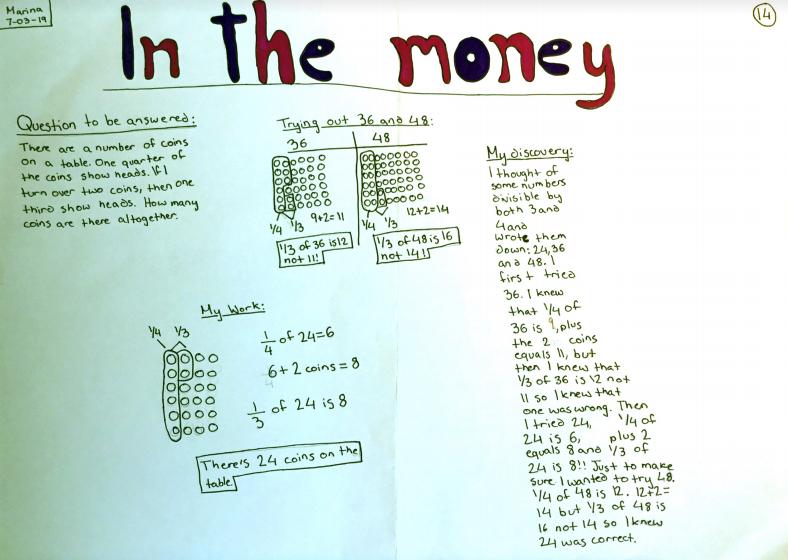 Marina
7-03-19
14
In the money
Question to be answered:
There are a number of coins
on a table. One quarter of
the coins show heads. If I
turn over two coins, then one
third show heads. How many
coins are there altogether.
Trying out 36 and 48:
36
48
9+2=11
12+2=14
1/4 1/3
1/4 1/3
1/3 of 36 is 12
not 11!
1/3 of 48 is 16
not 14!
My Work:
1/4 1/3
1/4 of 24=6
6+2 coins=8
1/3 of 24 is 8
There's 24 coins on the
table.
My discovery:
I thought of
some numbers
divisible by
both 3 and
4 and
wrote them
down: 24,36
and 48. I
first tried
36. I knew
that 1/4 of
36 is 9, plus
the 2 coins
equals 11, but
then I knew that
1/3 of 36 is 12 not
11 so I knew that
one was wrong. Then
I tried 24, 1/4 of
24 is 6, plus 2
equals 8 and 1/3 of
24 is 8!! Just to make
sure I wanted to try 48.
1/4 of 48 is 12. 12+2=
14 but 1/3 of 48 is
16 not 14 so I knew
24 was correct.